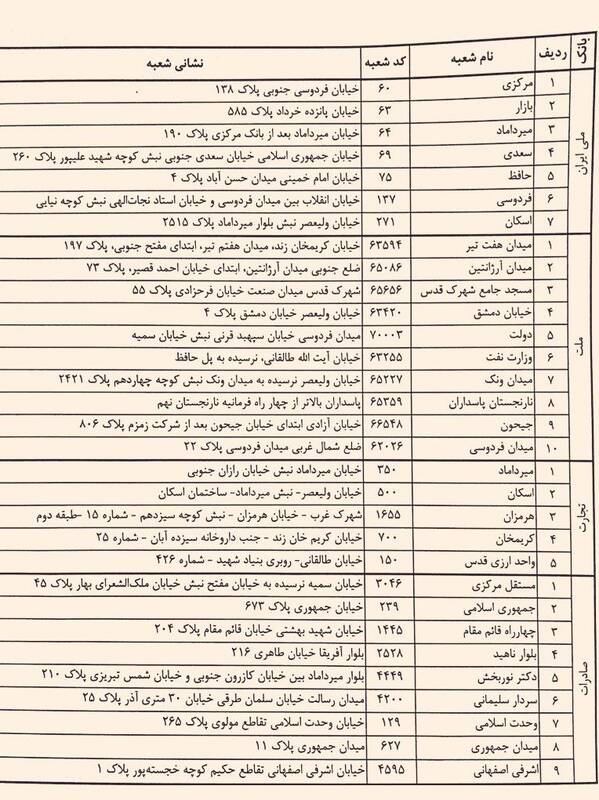 بانک ردیف نام شعبه کد شعبه نشانی شعبه
ملی ایران
۱ مرکزی ۶۰ خیابان فردوسی جنوبی پلاک ۱۳۸
۲ بازار ۶۳ خیابان پانزده خرداد پلاک ۵۸۵
۳ میرداماد ۶۴ خیابان میرداماد بعد از بانک مرکزی پلاک ۱۹۰
۴ سعدی ۶۹ خیابان جمهوری اسلامی خیابان سعدی جنوبی نبش کوچه شهید علیپور پلاک ۲۶۰
۵ حافظ ۷۵ خیابان امام خمینی میدان حسن آباد پلاک ۴
۶ فردوسی ۱۳۷ خیابان انقلاب بین میدان فردوسی و خیابان استاد نجات‌الهی نبش کوچه نیایی
۷ اسکان ۲۷۱ خیابان ولیعصر نبش بلوار میرداماد پلاک ۲۵۱۵
ملت
۱ میدان هفت تیر ۶۳۵۹۴ خیابان کریمخان زند، میدان هفتم تیر، ابتدای مفتح جنوبی، پلاک ۱۹۷
۲ میدان آرژانتین ۶۵۰۸۶ ضلع جنوبی میدان آرژانتین، ابتدای خیابان احمد قصیر، پلاک ۷۳
۳ مسجد جامع شهرک قدس ۶۵۶۵۶ شهرک قدس میدان صنعت خیابان فرحزادی پلاک ۵۵
۴ خیابان دمشق ۶۳۴۲۰ خیابان ولیعصر خیابان دمشق پلاک ۴
۵ دولت ۷۰۰۰۳ میدان فردوسی خیابان سپهبد قرنی نبش خیابان سمیه
۶ وزارت نفت ۶۳۲۵۵ خیابان آیت الله طالقانی، نرسیده به پل حافظ
۷ میدان ونک ۶۵۲۲۷ خیابان ولیعصر نرسیده به میدان ونک نبش کوچه چهاردهم پلاک ۲۴۲۱
۸ نارنجستان پاسداران ۶۵۳۵۹ پاسداران بالاتر از چهار راه فرمانیه نارنجستان نهم
۹ جیحون ۶۶۵۴۸ خیابان آزادی ابتدای خیابان جیحون بعد از شرکت زمزم پلاک ۸۰۶
۱۰ میدان فردوسی ۶۲۰۲۶ ضلع شمال غربی میدان فردوسی پلاک ۲۲
تجارت
۱ میرداماد ۳۵۰ خیابان میرداماد نبش خیابان رازان جنوبی
۲ اسکان ۵۰۰ خیابان ولیعصر- نبش میرداماد- ساختمان اسکان
۳ هرمزان ۱۶۵۵ شهرک غرب - خیابان هرمزان - نبش کوچه سیزدهم - شماره ۱۵ -طبقه دوم
۴ کریمخان ۷۰۰ خیابان کریم خان زند - جنب داروخانه سیزده آبان - شماره ۲۵
۵ واحد ارزی قدس ۱۵۰ خیابان طالقانی- روبری بنیاد شهید - شماره ۴۲۶
صادرات
۱ مستقل مرکزی ۳۰۴۶ خیابان سمیه نرسیده به خیابان مفتح نبش خیابان ملک‌الشعرای بهار پلاک ۴۵
۲ جمهوری اسلامی ۲۳۹ خیابان جمهوری پلاک ۶۷۳
۳ چهارراه قائم مقام ۱۴۴۵ خیابان شهید بهشتی خیابان قائم مقام پلاک ۲۰۴
۴ بلوار ناهید ۲۵۲۸ بلوار آفریقا خیابان طاهری ۲۱۶
۵ دکتر نوربخش ۴۴۴۹ بلوار میرداماد بین خیابان کازرون جنوبی و خیابان شمس تبریزی پلاک ۲۱۰
۶ سردار سلیمانی ۴۲۰۰ میدان رسالت خیابان سلمان طرقی خیابان ۳۰ متری آذر پلاک ۲۵
۷ وحدت اسلامی ۱۲۹ خیابان وحدت اسلامی تقاطع مولوی پلاک ۲۶۵
۸ میدان جمهوری ۶۲۷ میدان جمهوری پلاک ۱۱
۹ اشرفی اصفهانی ۴۵۹۵ خیابان اشرفی اصفهانی تقاطع حکیم کوچه خجسته‌پور پلاک ۱